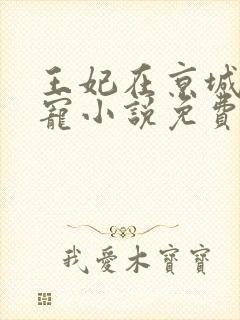 王妃在京城
寵小說免費
我愛木寶寶